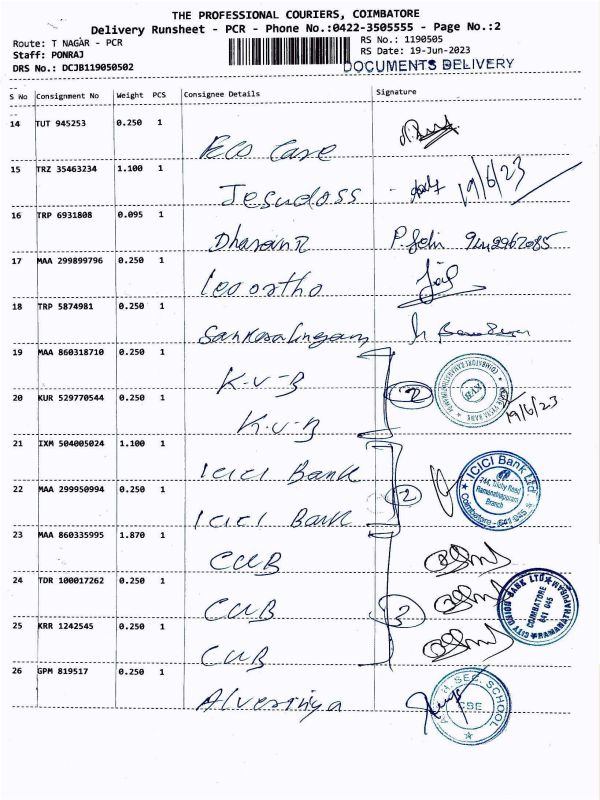 THE PROFESSIONAL COURIERS, COIMBATORE
Delivery Runsheet - PCR - Phone No.:0422-3505555 - Page No.:2
Route: T NAGAR - PCR RS No.: 1190505
Staff: PONRAJ RS Date: 19-Jun-2023
DRS No.: DCJB119050502 DOCUMENTS DELIVERY
S No Consignment No Weight PCS Consignee Details Signature
14 TUT 945253 0.250 1
Eco Care
15 TRZ 35463234 1.100 1
Jesudoss 19/6/23
16 TRP 6931808 0.095 1
17 MAA 299899796 0.250 1
Leo ortho
18 TRP 5874981 0.250 1
Sankaralingam
19 MAA 860318710 0.250 1
K-V-B 2
20 KUR 529770544 0.250 1 19/6/23
K-V-B
21 IXM 504005024 1.100 1
ICICI Bank ICICI Bank Ltd
22 MAA 299950994 0.250 1 2 744, Trichy Road
Ramanathapuram
Branch
ICICI Bank Coimbatore - 641 045
23 MAA 860335995 1.870 1
CUB
24 TDR 100017262 0.250 1
CUB 3 CITY UNION BANK LTD
COIMBATORE
641 045
RAMANATHAPURAM
25 KRR 1242545 0.250 1
CUB
26 GPM 819517 0.250 1
Alverniya H. SEC. SCHOOL